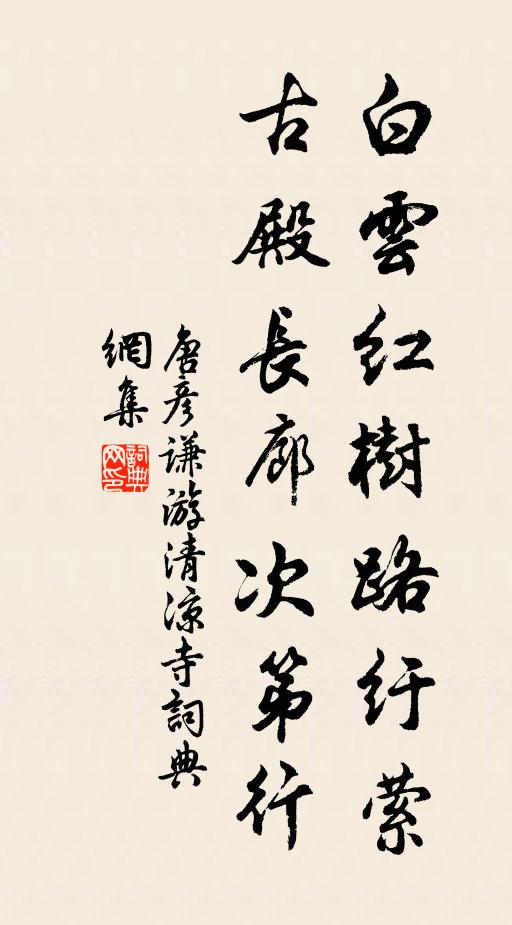 白雲紅樹路紆縈
古殿長廊次第行
唐彥謙游清涼寺詞典
網集
詞典
网印